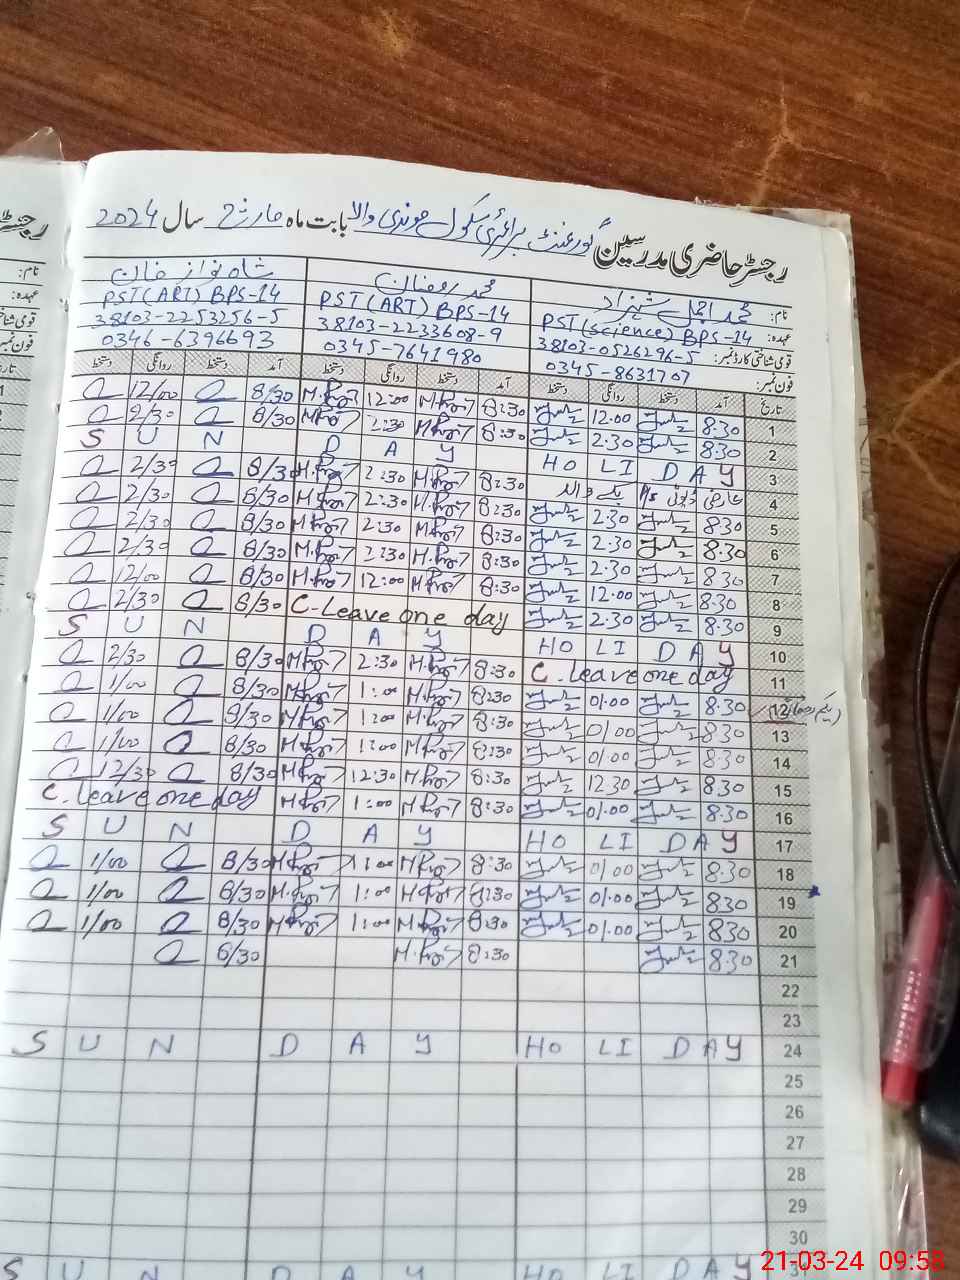 رجسٹر حاضری مدرسین گورنمنٹ پرائمری سکول والا بابت ماہ مارچ سال 2024
نام: محمد اجمل شہزاد محمد رمضان شاہ نواز خان
عہدہ: PST (Science) BPS-14 PST (ART) BPS-14 PST (ART) BPS-14
قومی شناختی کارڈ نمبر: 38103-0526296-5 38103-2233608-9 38103-2253256-5
فون نمبر: 0345-8631707 0345-7641980 0346-6396693
تاریخ آمد دستخط روانگی دستخط آمد دستخط روانگی دستخط آمد دستخط روانگی دستخط
1 8.30 12.00 8:30 12:00 8/30 12/00
2 8.30 2.30 8:30 2:30 8/30 2/30
3 HO LI DAY S U N D A Y
4 عارضی ڈیوٹی 8:30 2:30 8/30 2/30
5 8.30 2.30 8:30 2:30 8/30 2/30
6 8.30 2.30 8:30 2:30 8/30 2/30
7 8.30 2.30 8:30 2:30 8/30 2/30
8 8.30 12.00 8:30 12:00 8/30 12/00
9 8.30 2.30 C-Leave one day 8/30 2/30
10 HO LI DAY S U N D A Y
11 C.leave one day 8:30 2:30 8/30 2/30
12 8.30 01.00 8:30 1:00 8/30 1/00
13 8.30 01.00 8:30 1:00 8/30 1/00
14 8.30 01.00 8:30 1:00 8/30 1/00
15 8.30 12.30 8:30 12:30 8/30 12/30
16 8.30 01.00 8:30 1:00 C.leave one day
17 HO LI DAY S U N D A Y
18 8.30 01.00 8:30 1:00 8/30 1/00
19 830 01.00 8:30 1:00 8/30 1/00
20 830 01.00 8:30 1:00 8/30 1/00
21 8.30 8:30 8/30
22
23
24 HO LI DAY S U N D A Y
25
26
27
28
29
30
31 HO LI DAY S U N D A Y
رجسٹر
نام:
عہدہ:
21-03-24 09:58